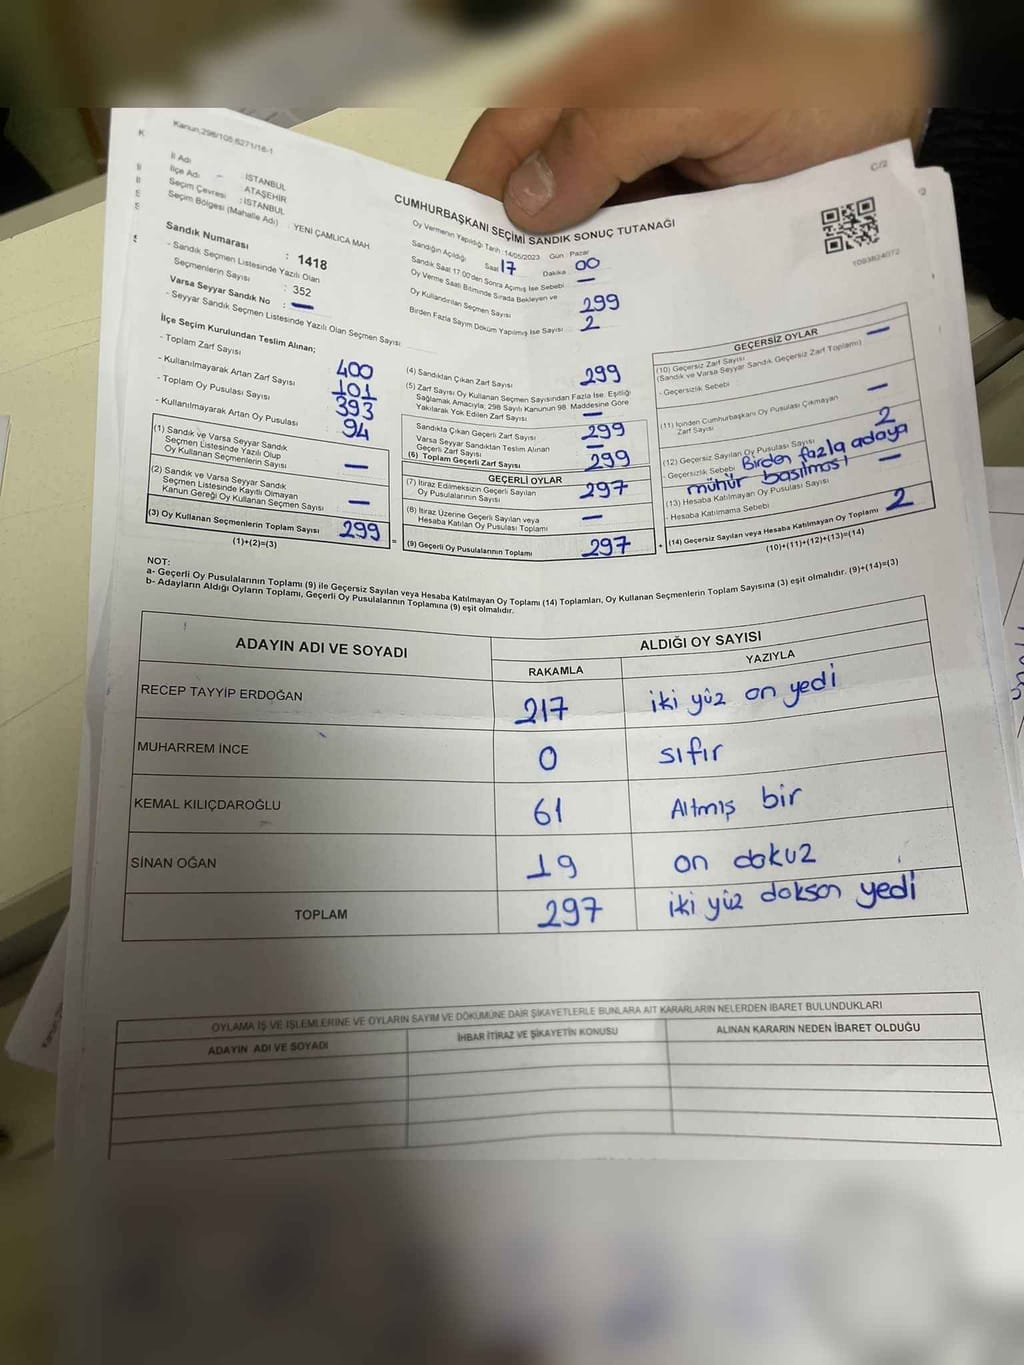 Kanun,298/105,6271/16-1
C/2
İl Adı : İSTANBUL
İlçe Adı : ATAŞEHİR
Seçim Çevresi : İSTANBUL
Seçim Bölgesi (Mahalle Adı) : YENİ ÇAMLICA MAH.
CUMHURBAŞKANI SEÇİMİ SANDIK SONUÇ TUTANAĞI
Oy Vermenin Yapıldığı Tarih :14/05/2023 Gün Pazar
Sandığın Açıldığı Saat 17 Dakika 00
Sandık Saat 17.00'den Sonra Açımış İse Sebebi —
Oy Verme Saati Bitiminde Sırada Bekleyen ve
Oy Kullandırılan Seçmen Sayısı 299
Birden Fazla Sayım Döküm Yapılmış İse Sayısı 2
Sandık Numarası : 1418
- Sandık Seçmen Listesinde Yazılı Olan
Seçmenlerin Sayısı : 352
Varsa Seyyar Sandık No : —
- Seyyar Sandık Seçmen Listesinde Yazılı Olan Seçmen Sayısı
İlçe Seçim Kurulundan Teslim Alınan;
- Toplam Zarf Sayısı 400
- Kullanılmayarak Artan Zarf Sayısı 101
- Toplam Oy Pusulası Sayısı 393
- Kullanılmayarak Artan Oy Pusulası 94
(1) Sandık ve Varsa Seyyar Sandık
Seçmen Listesinde Yazılı Olup
Oy Kullanan Seçmenlerin Sayısı —
(2) Sandık ve Varsa Seyyar Sandık
Seçmen Listesinde Kayıtlı Olmayan
Kanun Gereği Oy Kullanan Seçmen Sayısı —
(3) Oy Kullanan Seçmenlerin Toplam Sayısı 299
(1)+(2)=(3)
(4) Sandıktan Çıkan Zarf Sayısı 299
(5) Zarf Sayısı Oy Kullanan Seçmen Sayısından Fazla İse, Eşitliği
Sağlamak Amacıyla; 298 Sayılı Kanunun 98. Maddesine Göre
Yakılarak Yok Edilen Zarf Sayısı —
Sandıkta Çıkan Geçerli Zarf Sayısı 299
Varsa Seyyar Sandıktan Teslim Alınan
Geçerli Zarf Sayısı —
(6) Toplam Geçerli Zarf Sayısı 299
GEÇERLİ OYLAR
(7) İtiraz Edilmeksizin Geçerli Sayılan
Oy Pusulalarının Sayısı 297
(8) İtiraz Üzerine Geçerli Sayılan veya
Hesaba Katılan Oy Pusulası Toplamı —
= (9) Geçerli Oy Pusulalarının Toplamı 297
GEÇERSİZ OYLAR
(10) Geçersiz Zarf Sayısı —
(Sandık ve Varsa Seyyar Sandık Geçersiz Zarf Toplamı)
- Geçersizlik Sebebi
(11) İçinden Cumhurbaşkanı Oy Pusulası Çıkmayan
Zarf Sayısı —
(12) Geçersiz Sayılan Oy Pusulası Sayısı 2
- Geçersizlik Sebebi Birden fazla adaya
mühür basılması
(13) Hesaba Katılmayan Oy Pusulası Sayısı —
- Hesaba Katılmama Sebebi
+ (14) Geçersiz Sayılan veya Hesaba Katılmayan Oy Toplamı 2
(10)+(11)+(12)+(13)=(14)
NOT:
a- Geçerli Oy Pusulalarının Toplamı (9) ile Geçersiz Sayılan veya Hesaba Katılmayan Oy Toplamı (14) Toplamları, Oy Kullanan Seçmenlerin Toplam Sayısına (3) eşit olmalıdır. (9)+(14)=(3)
b- Adayların Aldığı Oyların Toplamı, Geçerli Oy Pusulalarının Toplamına (9) eşit olmalıdır.
ADAYIN ADI VE SOYADI ALDIĞI OY SAYISI
RAKAMLA YAZIYLA
RECEP TAYYİP ERDOĞAN 217 iki yüz on yedi
MUHARREM İNCE 0 sıfır
KEMAL KILIÇDAROĞLU 61 Altmış bir
SİNAN OĞAN 19 on dokuz
TOPLAM 297 iki yüz doksan yedi
OYLAMA İŞ VE İŞLEMLERİNE VE OYLARIN SAYIM VE DÖKÜMÜNE DAİR ŞİKAYETLERLE BUNLARA AİT KARARLARIN NELERDEN İBARET BULUNDUKLARI
ADAYIN ADI VE SOYADI İHBAR İTİRAZ VE ŞİKAYETİN KONUSU ALINAN KARARIN NEDEN İBARET OLDUĞU